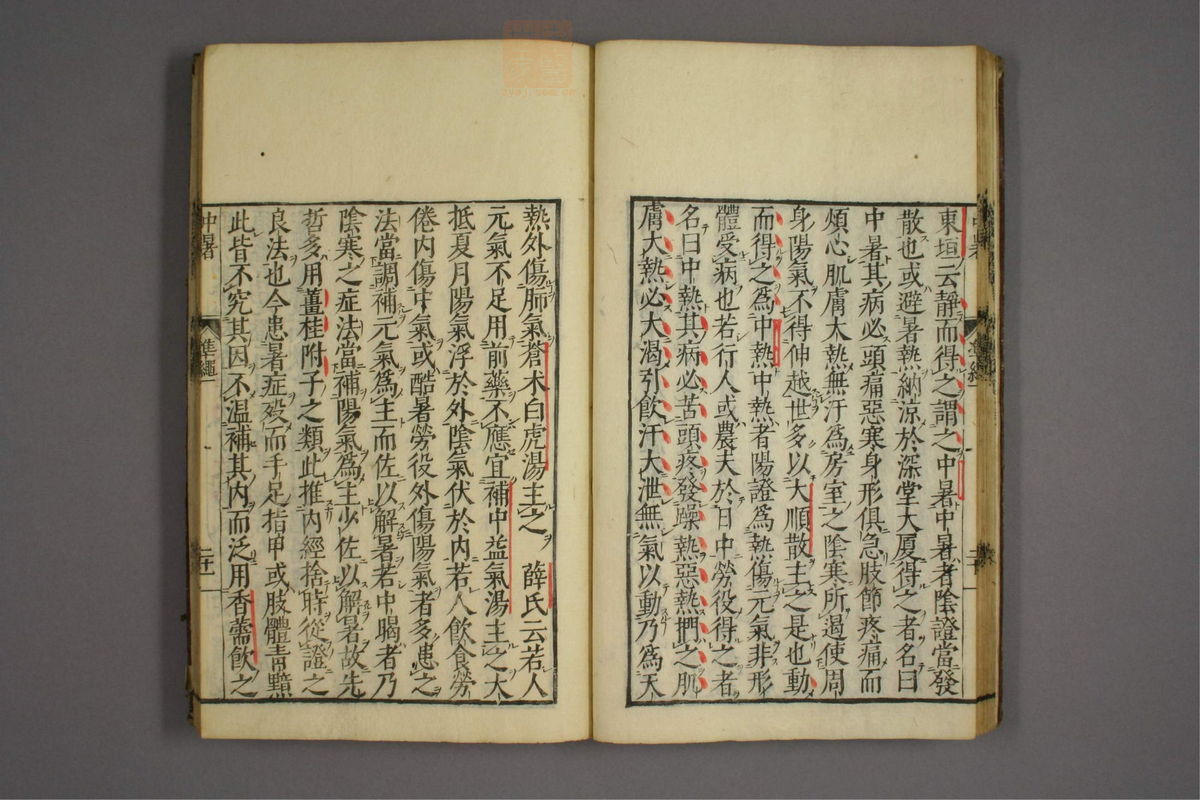 東垣云靜而得之謂之中暑中暑者陰證當發
散也或避暑熱納涼於深堂大厦得之者名曰
中暑其病必頭痛惡寒身形俱急肢節疼痛而
煩心肌膚大熱無汗為房室之陰寒所遏使周
身陽氣不得伸越世多以大順散主之是也動
而得之爲中熱中熱者陽證爲熱傷元氣非形
體受病也若行人或農夫於日中勞役得之者
名曰中熱其病必苦頭疼發躁熱惡熱捫之肌
膚大熱必大渴引飲汗大泄無氣以動乃爲天
熱外傷肺氣蒼朮白虎湯主之 薛氏云若人
元氣不足用前藥不應宜補中益氣湯主之大
抵夏月陽氣浮於外陰氣伏於內若人飲食勞
倦內傷中氣或酷暑勞役外傷陽氣者多患之
法當調補元氣爲主而佐以解暑若中暍者乃
陰寒之症法當補陽氣爲主少佐以解暑故先
哲多用薑桂附子之類此推內經捨時從證之
良法也今患暑症歿而手足指甲或肢體青黯
此皆不究其因不溫補其內而泛用香薷飲之
中暑
準繩
二十一